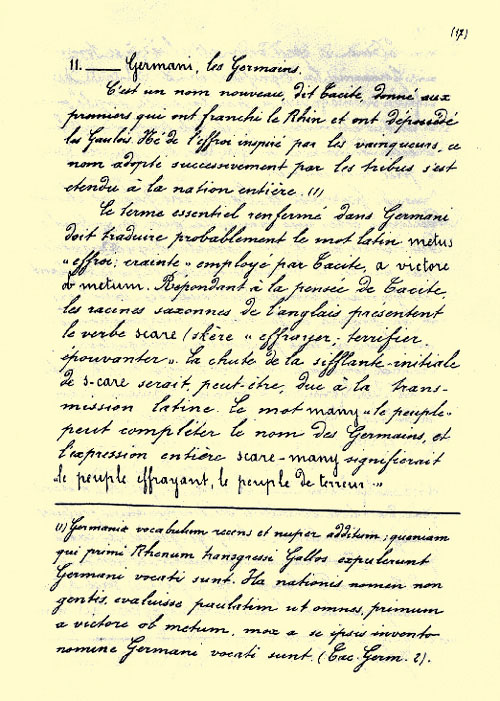 (17)
11. —— Germani, les Germains.
C'est un nom nouveau, dit Tacite, donné aux
premiers qui ont franchi le Rhin et ont dépossédé
les Gaulois. Né de l'effroi inspiré par les vainqueurs, ce
nom adopté successivement par les tribus s'est
étendu à la nation entière. (1)
Le terme essentiel renfermé dans Germani
doit traduire probablement le mot latin metus
"effroi; crainte" employé par Tacite, a victore
ob metum. Répondant à la pensée de Tacite,
les racines saxonnes de l'anglais présentent
le verbe scare (skère " effrayer, terrifier,
épouvanter". La chute de la sifflante initiale
de s-care serait, peut-être, due à la trans-
mission latine. Le mot many "le peuple"
peut compléter le nom des Germains, et
l'expression entière scare-many signifierait
"le peuple effrayant, le peuple de terreur"
(1) Germaniae vocabulum recens et nuper additum; quoniam
qui primi Rhenum transgressi Gallos expulerunt
Germani vocati sunt. Ita nationis nomen non
gentis, evaluisse paulatim ut omnes, primum
a victore ob metum, mox a se ipsis invento
nomine Germani vocati sunt. (Tac. Germ. 2).